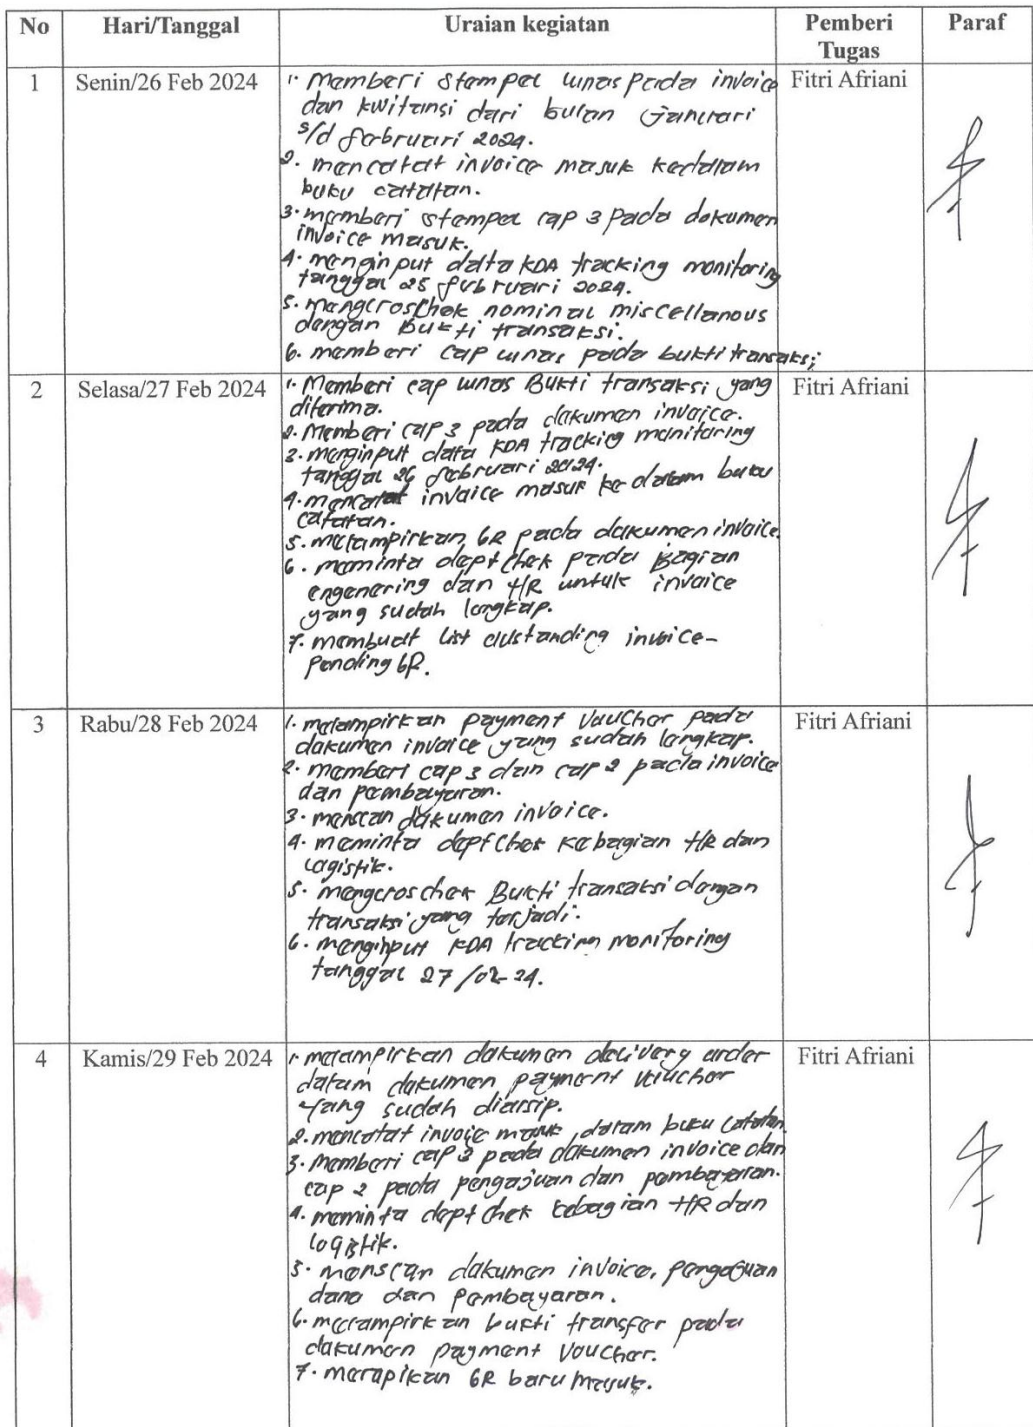 No Hari/Tanggal Uraian kegiatan Pemberi Tugas Paraf
1 Senin/26 Feb 2024 Fitri Afriani
1. Memberi stempel lunas pada invoice
dan kwitansi dari bulan Januari
s/d februari 2024.
2. mencatat invoice masuk kedalam
buku catatan.
3. memberi stempel cap 3 pada dokumen
invoice masuk.
4. menginput data KDA tracking monitoring
tanggal 25 februari 2024.
5. mengcroschek nominal miscellanous
dengan Bukti transaksi.
6. memberi cap lunas pada bukti transaksi
2 Selasa/27 Feb 2024 Fitri Afriani
1. Memberi cap lunas Bukti transaksi yang
diterima.
2. Memberi cap 3 pada dokumen invoice.
3. menginput data KDA tracking monitoring
tanggal 26 februari 2024.
4. mencatat invoice masuk ke dalam buku
catatan.
5. melampirkan GR pada dokumen invoice.
6. meminta dept chek pada Bagian
engenering dan HR untuk invoice
yang sudah lengkap.
7. membuat list outstanding invoice-
Pending GR.
3 Rabu/28 Feb 2024 Fitri Afriani
1. melampirkan payment Voucher pada
dokumen invoice yang sudah lengkap.
2. memberi cap 3 dan cap 2 pada invoice
dan pembayaran.
3. menscan dokumen invoice.
4. meminta dept chek kebagian HR dan
Logistik.
5. mengcroschek Bukti transaksi dengan
transaksi yang terjadi.
6. menginput KDA tracking monitoring
tanggal 27/02-24.
4 Kamis/29 Feb 2024 Fitri Afriani
1. melampirkan dokumen delivery order
dalam dokumen payment voucher
yang sudah diarsip.
2. mencatat invoice masuk dalam buku catatan.
3. Memberi cap 3 pada dokumen invoice dan
cap 2 pada pengajuan dan pembayaran.
4. meminta dept chek kebagian HR dan
logistik.
5. menscan dokumen invoice, pengajuan
dana dan Pembayaran.
6. melampirkan bukti transfer pada
dokumen payment Voucher.
7. merapikan GR baru masuk.